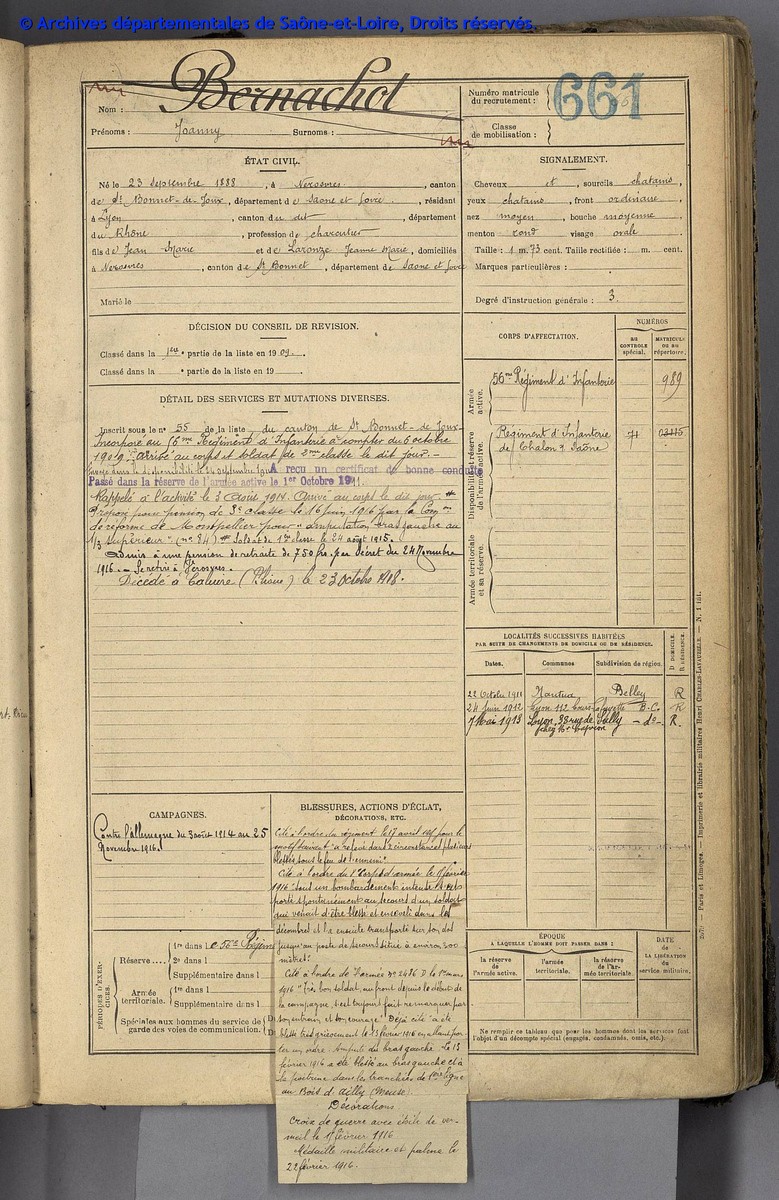 © Archives départementales de Saône-et-Loire, Droits réservés.
Nom : Bernachot
Prénoms : Joanny Surnoms :
Numéro matricule du recrutement : 661
Classe de mobilisation :
ÉTAT CIVIL.
Né le 23 Septembre 1888, à canton
de St Bonnet-de-Joux, département de Saône et Loire, résidant
à Lyon, canton du dit, département
du Rhône, profession de charcutier
fils de Jean Marie et de Laronze Jeanne Marie, domiciliés
à canton de St Bonnet, département de Saône et Loire
Marié le
SIGNALEMENT.
Cheveux et, sourcils chatains,
yeux chatains, front ordinaire,
nez moyen, bouche moyenne
menton rond visage ovale
Taille : 1 m. 73 cent. Taille rectifiée : m. cent.
Marques particulières :
Degré d'instruction générale : 3.
DÉCISION DU CONSEIL DE REVISION.
Classé dans la 1re partie de la liste en 1909.
Classé dans la e partie de la liste en 19
DÉTAIL DES SERVICES ET MUTATIONS DIVERSES.
Inscrit sous le n° 55 de la liste du canton de St Bonnet-de-Joux
Incorporé au 56me Régiment d'Infanterie à compter du 6 octobre
1909, arrivé au corps et soldat de 2me classe le dit jour. -
A reçu un certificat de bonne conduite
Passé dans la réserve de l'armée active le 1er Octobre 1911.
Rappelé à l'activité le 3 Août 1914. Arrivé au corps le dit jour
Réformé pour pension de 3e classe le 16 juin 1916 par la Com
de réforme de Montpellier pour "amputation bras gauche au
1/3 supérieur" (n° 84) Soldat de 1re classe le 24 août 1915.
Admis à une pension de retraite de 750 frs. par décret du 24 Novembre
1916. - Se retire à
Décédé à Caluire (Rhône) le 23 Octobre 1918.
CORPS D'AFFECTATION.
NUMÉROS
AU CONTROLE spécial.
MATRICULE OU AU répertoire.
Armée active.
56me Régiment d'Infanterie 989
Disponibilité et réserve de l'armée active.
Régiment d'Infanterie
de Chalon s. Saône 71
Armée territoriale et sa réserve.
LOCALITÉS SUCCESSIVES HABITÉES
PAR SUITE DE CHANGEMENTS DE DOMICILE OU DE RÉSIDENCE.
Dates. Communes Subdivision de région. D domicile. R résidence.
22 Octobre 1911 Nantua Belley R
24 Juin 1912 Lyon 112 Cours Lafayette B.C. R
7 Mai 1913 Lyon, 38 rue de Sully - do - R.
CAMPAGNES.
Contre l'Allemagne du 3 août 1914 au 25
Novembre 1916.
BLESSURES, ACTIONS D'ÉCLAT,
DÉCORATIONS, ETC.
Cité à l'ordre du régiment le 17 avril pour le
motif suivant "a relevé dans 2 circonstances plusieurs
blessés sous le feu de l'ennemi".
Cité à l'ordre du Corps d'armée le février
1916 "sous un bombardement intense s'est
porté spontanément au secours d'un soldat
qui venait d'être blessé et enseveli dans les
décombres et l'a ensuite transporté sur son dos
jusqu'au poste de secours situé à environ 300
mètres"
Cité à l'ordre de l'armée n° 2436 D le 1er mars
1916 "Très bon soldat, au front depuis le début de
la campagne, s'est toujours fait remarquer par
son entrain et son courage". Déjà cité "a été
blessé très grièvement le 13 février 1916 en allant por-
ter un ordre. Amputé du bras gauche. Le 13
février 1916 a été blessé au bras gauche et à
la poitrine dans la tranchée de 1ère ligne
au Bois d'Ailly (Meuse).
Décorations
Croix de guerre avec étoile de ver-
meil le février 1916
Médaille militaire et palme le
22 février 1916.
PÉRIODES D'EXERCICES.
Réserve .... 1re dans l e 56e Région
2e dans l
Supplémentaire dans l
Armée territoriale. 1re dans l
Supplémentaire dans l
Spéciales aux hommes du service de
garde des voies de communication.
ÉPOQUE
A LAQUELLE L'HOMME DOIT PASSER DANS :
la réserve de l'armée active.
l'armée territoriale.
la réserve de l'armée territoriale.
DATE de LA LIBÉRATION du service militaire.
Ne remplir ce tableau que pour les hommes dont les services font
l'objet d'un décompte spécial (engagés, condamnés, omis, etc.).
Paris et Limoges. — Imprimerie et librairie militaires Henri CHARLES-LAVAUZELLE. — N. 1 bit.